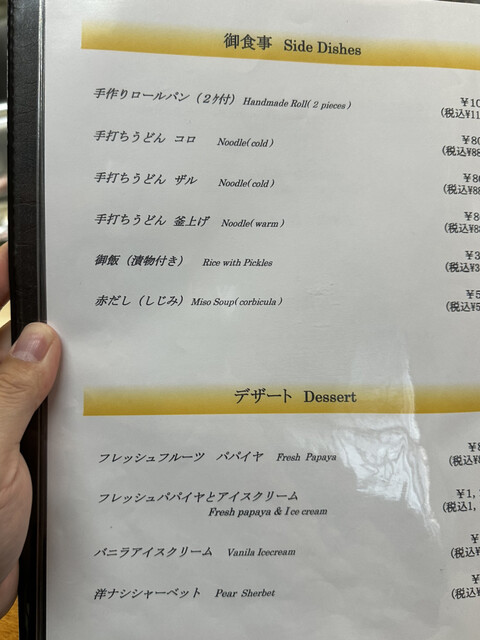 御食事 Side Dishes
手作りロールパン（２ｹ付） Handmade Roll( 2 pieces )
￥10
(税込¥11
手打ちうどん コロ Noodle(cold)
￥80
(税込¥88
手打ちうどん ザル Noodle(cold)
￥80
(税込¥88
手打ちうどん 釜上げ Noodle(warm)
￥80
(税込¥88
御飯（漬物付き） Rice with Pickles
￥3
(税込¥3
赤だし（しじみ） Miso Soup(corbicula)
￥5
(税込¥5
デザート Dessert
フレッシュフルーツ パパイヤ Fresh Papaya
￥8
(税込¥8
フレッシュパパイヤとアイスクリーム
Fresh papaya & Ice cream
￥1,
(税込1,
バニラアイスクリーム Vanila Icecream
￥
(税込¥
洋ナシシャーベット Pear Sherbet
￥
(税込¥